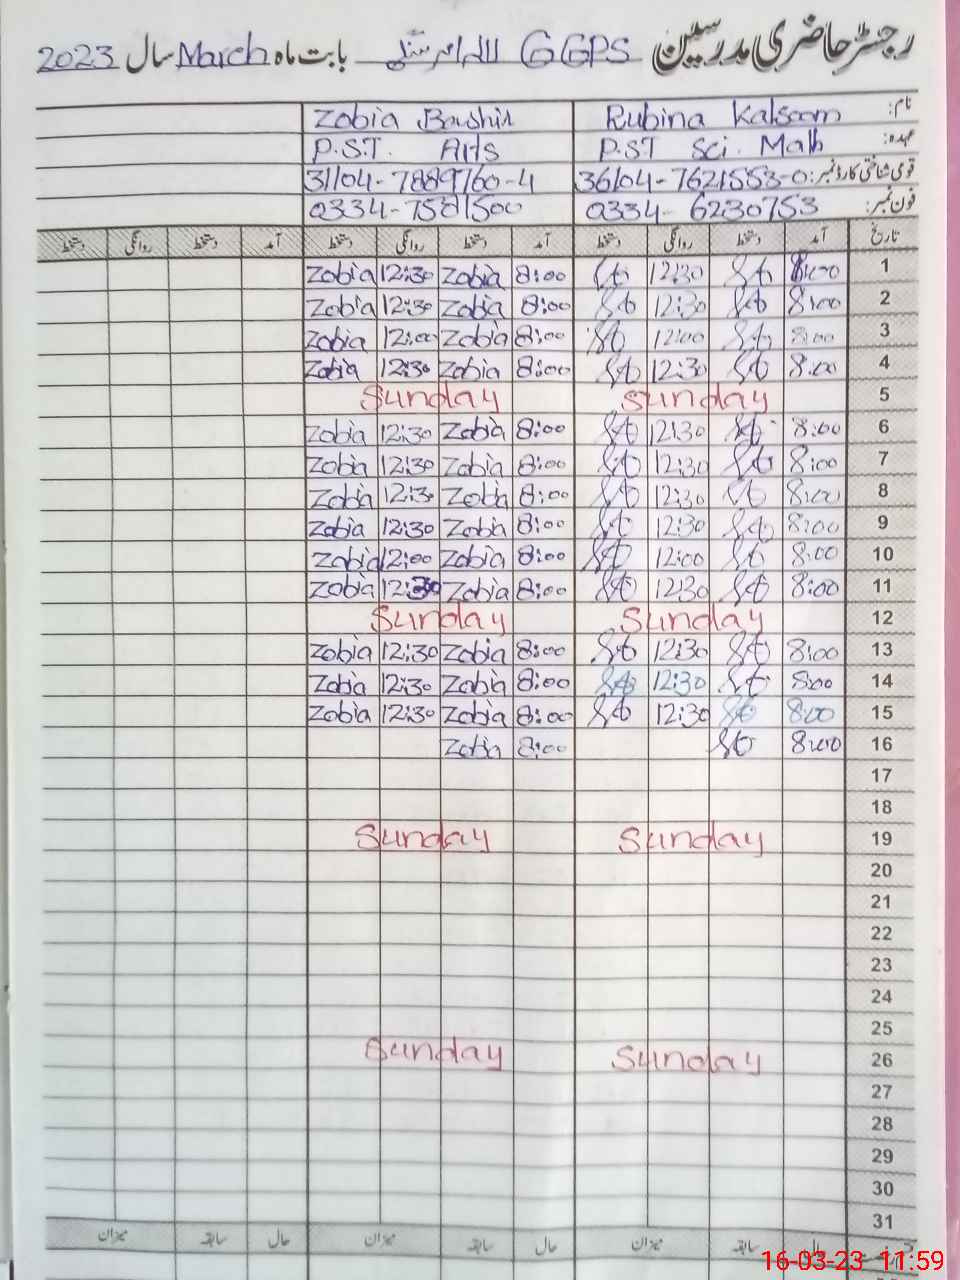 رجسٹر حاضری مدرسین GGPS بابت ماہ March سال 2023
نام: Rubina Kalsoom Zobia Bashir
عہدہ: P.ST Sci. Math P.S.T. Arts
قومی شناختی کارڈ نمبر: 36104-7621553-0 31104-7889760-4
فون نمبر: 0334-6230753 0334-7581500
تاریخ آمد دستخط روانگی دستخط آمد دستخط روانگی دستخط آمد دستخط روانگی دستخط
1 8:00 12:30 8:00 Zobia 12:30 Zobia
2 8:00 12:30 8:00 Zobia 12:30 Zobia
3 8:00 12:00 8:00 Zobia 12:00 Zobia
4 8:00 12:30 8:00 Zobia 12:30 Zobia
5 Sunday Sunday
6 8:00 12:30 8:00 Zobia 12:30 Zobia
7 8:00 12:30 8:00 Zobia 12:30 Zobia
8 8:00 12:30 8:00 Zobia 12:30 Zobia
9 8:00 12:30 8:00 Zobia 12:30 Zobia
10 8:00 12:00 8:00 Zobia 12:00 Zobia
11 8:00 12:30 8:00 Zobia 12:30 Zobia
12 Sunday Sunday
13 8:00 12:30 8:00 Zobia 12:30 Zobia
14 8:00 12:30 8:00 Zobia 12:30 Zobia
15 8:00 12:30 8:00 Zobia 12:30 Zobia
16 8:00 8:00 Zobia
17
18
19 Sunday Sunday
20
21
22
23
24
25
26 Sunday Sunday
27
28
29
30
31
حال سابقہ میزان حال سابقہ میزان حال سابقہ میزان
16-03-23 11:59